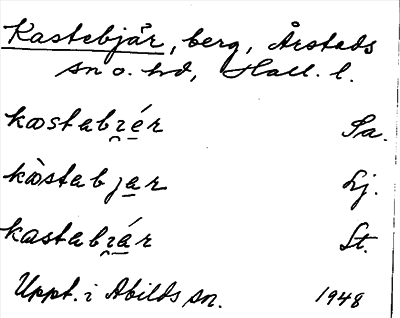 Kastebjär, berg, Årstads
sn o. hd, Hall. l.
kæstabɪ̯ér Sa.
kæ̀stabjar Lj.
kastabɪ̯ár St.
Uppt. i Abilds sn. 1948